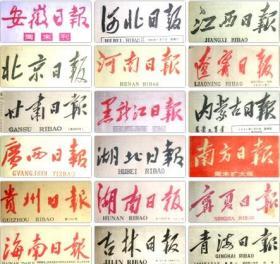 安徽日報
周末刊
河北日報
HEBEI RIBAO
江西日報
JIANGXI RIBAO
北京日報
河南日報
HENAN RIBAO
遼寧日報
LIAONING RIBAO
甘肃日報
GANSU RIBAO
黑龍江日報
内蒙古日報
廣西日報
GVANGJSIH YIZBAU
湖北日報
HUBEI RIBAO
南方日報
周末扩大版
貴州日報
GUIZHOU RIBAO
湖南日報
HUNAN RIBAO
寧夏日報
NINGXIA RIBAO
海南日報
HAINAN RIBAO
吉林日報
JILIN RIBAO
青海日報
QINGHAI RIBAO